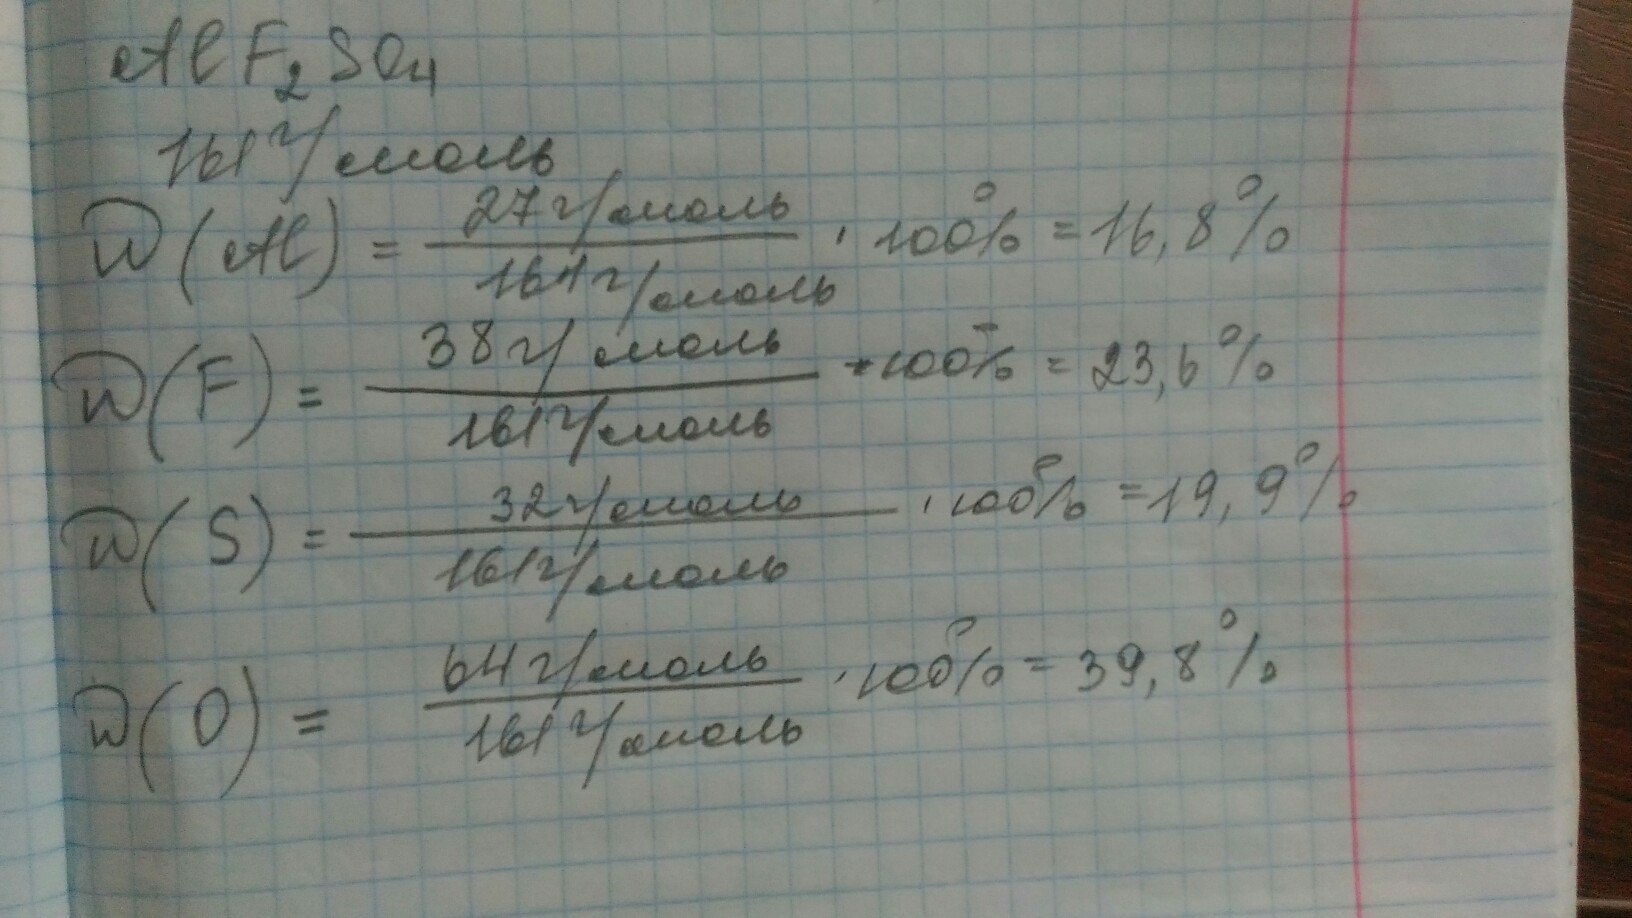 AlF₂SO₄
161 г/моль
W(Al) = 27 г/моль / 161 г/моль · 100% = 16,8%
W(F) = 38 г/моль / 161 г/моль · 100% = 23,6%
W(S) = 32 г/моль / 161 г/моль · 100% = 19,9%
W(O) = 64 г/моль / 161 г/моль · 100% = 39,8%